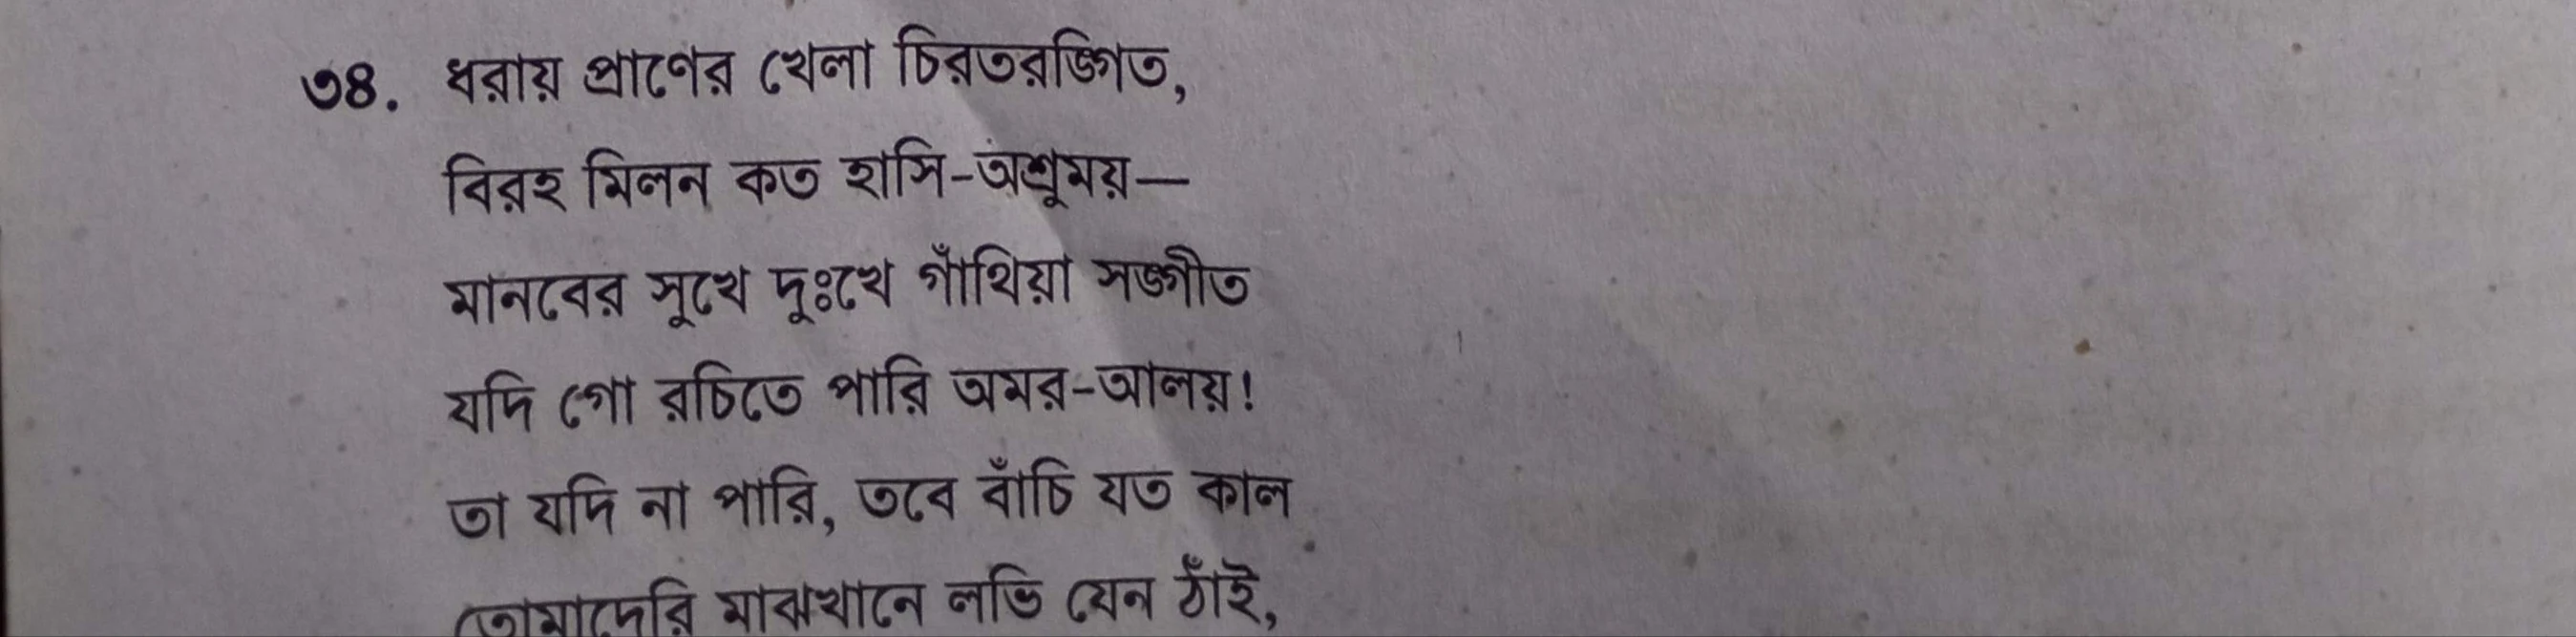 ৩৪. ধরায় প্রাণের খেলা চিরতরঙ্গিত,
বিরহ মিলন কত হাসি-অশ্রুময়—
মানবের সুখে দুঃখে গাঁথিয়া সঙ্গীত
যদি গো রচিতে পারি অমর-আলয়!
তা যদি না পারি, তবে বাঁচি যত কাল
তোমাদেরি মাঝখানে লভি যেন ঠাঁই,